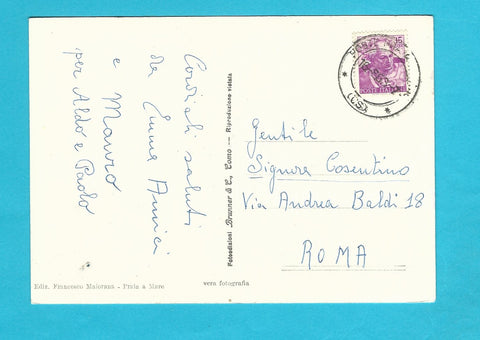 Cordiali saluti
da Emma Amici
e Mauro
per Aldo e Paolo
Fotoedizioni Brunner & C., Como — Riproduzione vietata
Gentile
Signora Cosentino
Via Andrea Baldi 18
ROMA
Ediz. Francesco Maiorana - Praia a Mare
vera fotografia
15
POSTE ITALIANE
(CS)